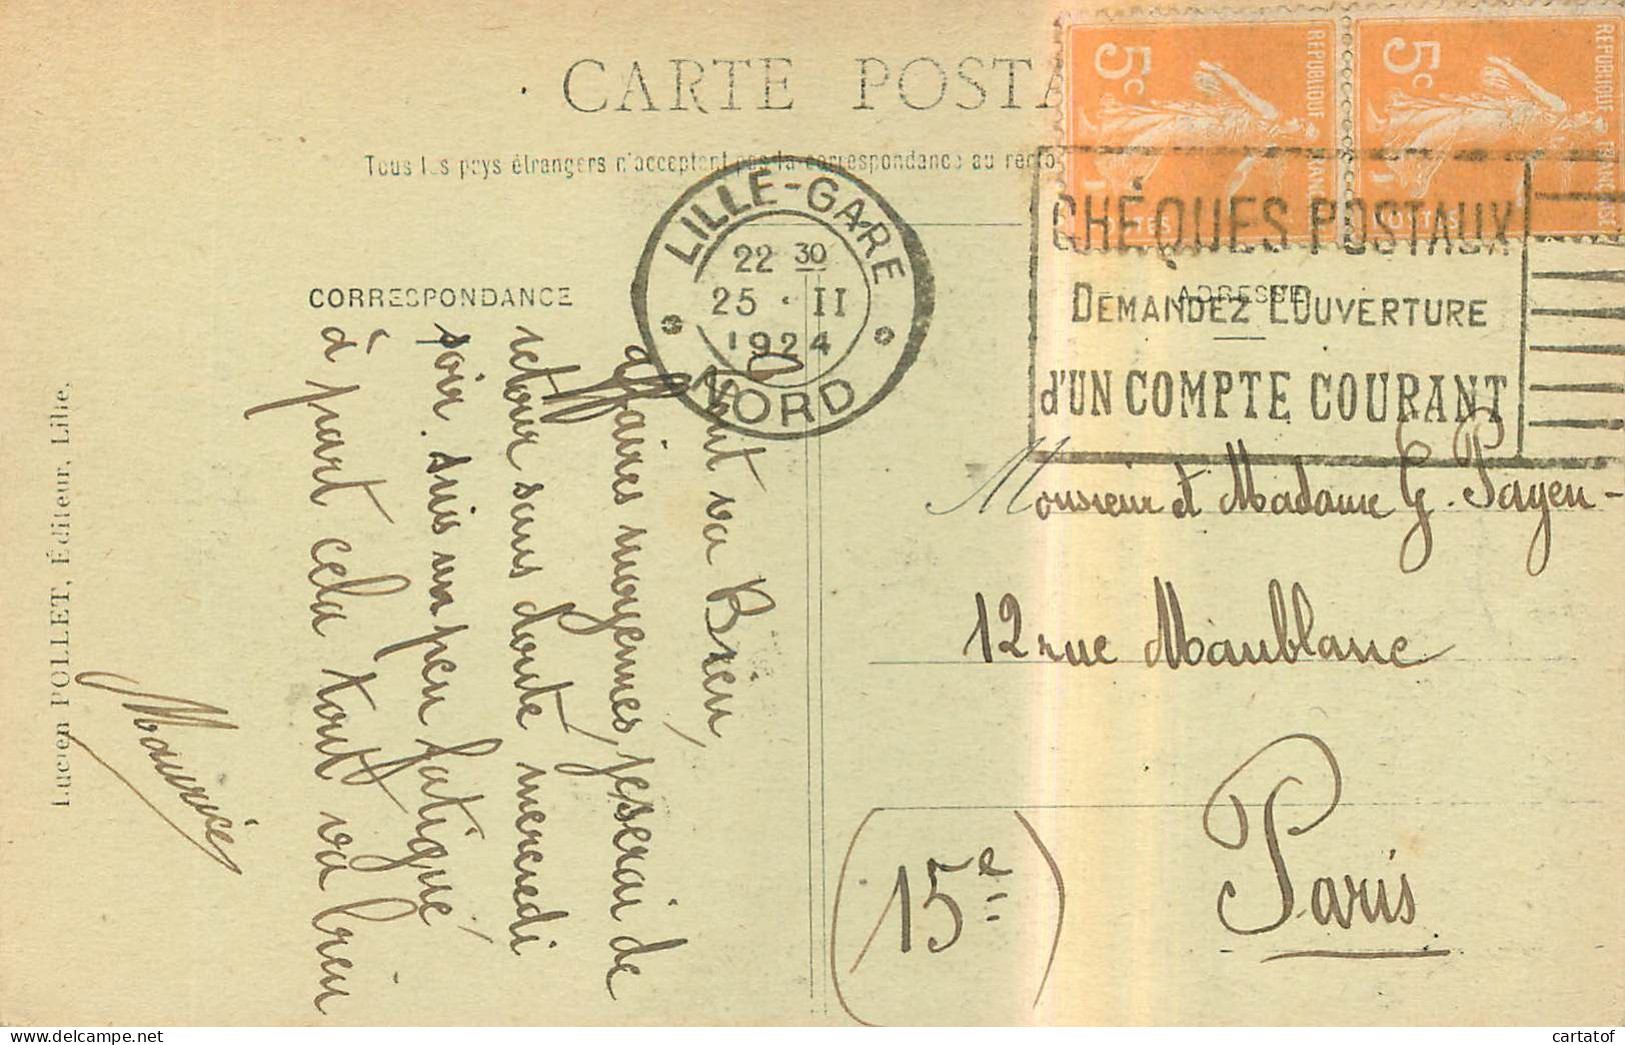 CARTE POSTA
Tous les pays étrangers n'acceptent pas la correspondance au recto
CORRESPONDANCE
ADRESSE
5c
REPUBLIQUE FRANCAISE
POSTES
5c
REPUBLIQUE FRANCAISE
POSTES
LILLE-GARE
22 30
25 · II
1924
NORD
CHÈQUES POSTAUX
DEMANDEZ L'OUVERTURE
d'UN COMPTE COURANT
Tout va Bien,
affaires moyennes, je serai de
retour sans doute mercredi
soir. suis un peu fatigué,
à part cela tout va bien
Maurice
Monsieur et Madame G. Payen -
12 rue Maublanc
Paris
(15e)
Lucien POLLET, Éditeur, Lille.
cartatof